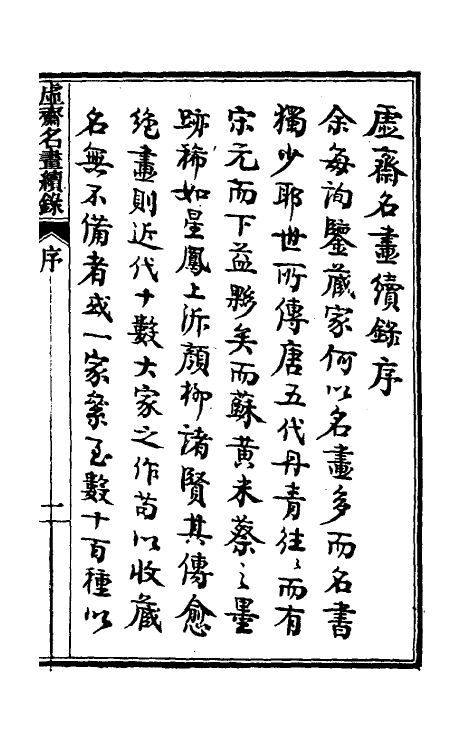 虛齋名畫續錄序
余每詢鑒藏家何以名畫多而名書
獨少耶世所傳唐五代丹青往〻而有
宋元而下益夥矣而蘇黃米蔡之墨
跡稀如星鳳上泝顏柳諸賢其傳愈
絶畫則近代十數大家之作苟以收藏
名無不備者或一家絫至數十百種以
虛齋名畫續錄
序
一